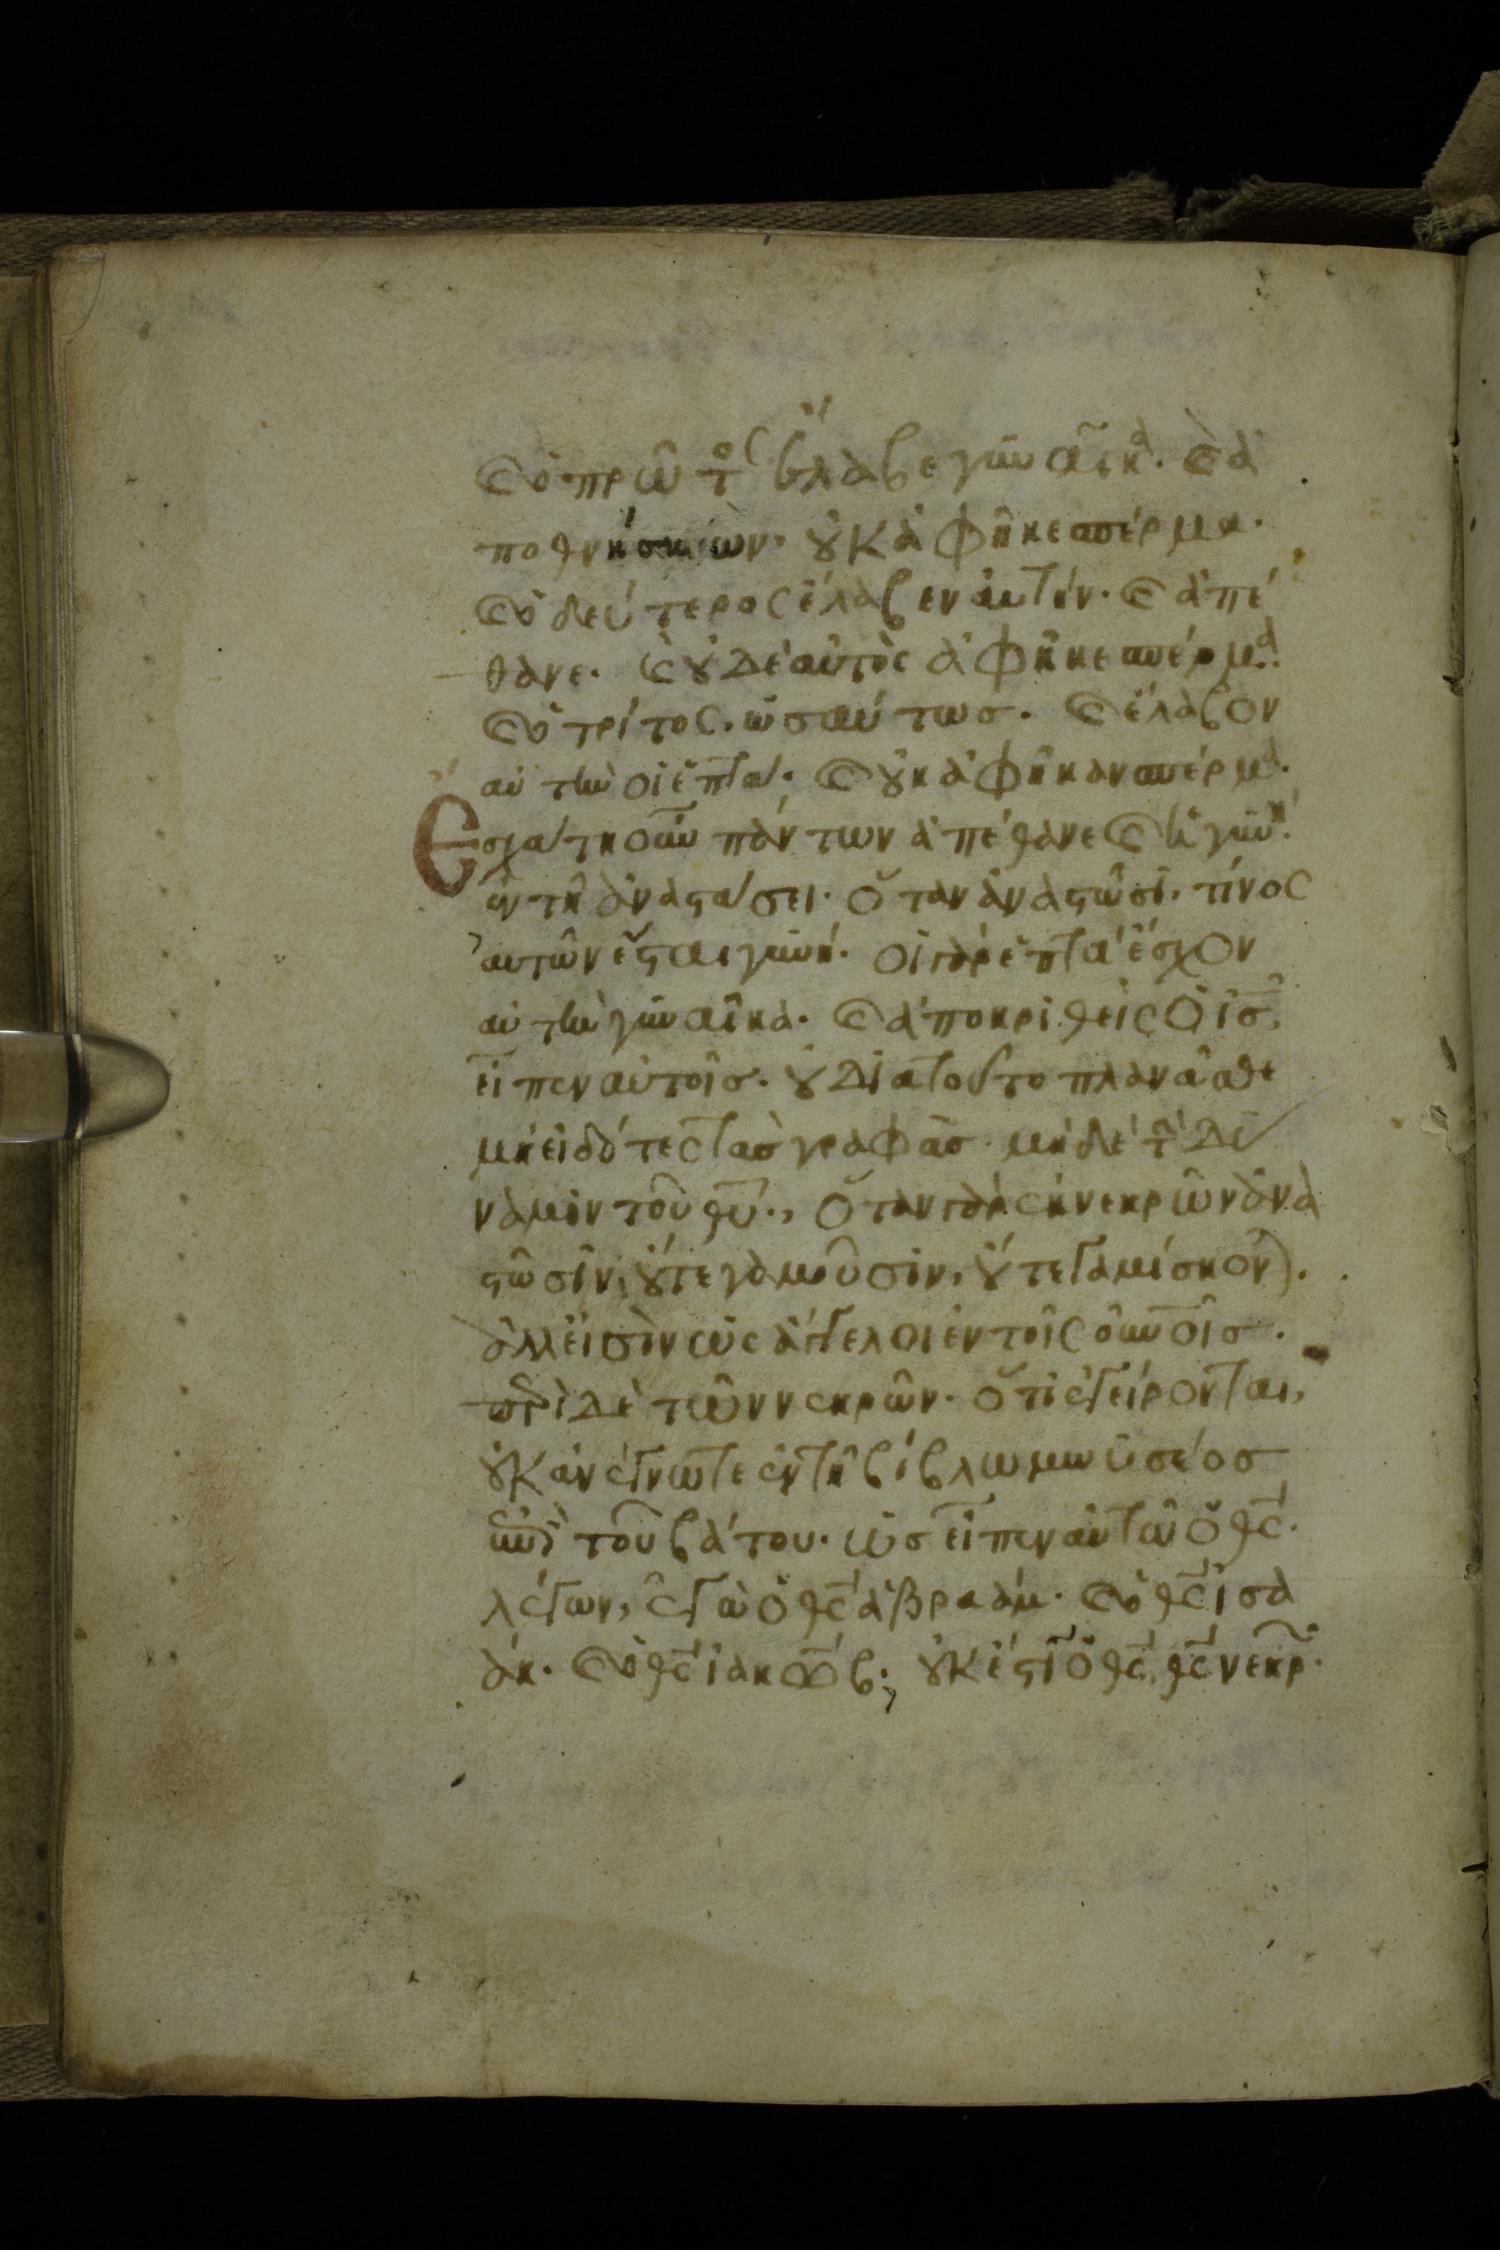 καὶ ὁ πρῶτος ἔλαβε γυναῖκα. καὶ ἀ
ποθνήσκων. οὐκ ἀφῆκε σπέρμα.
καὶ ὁ δεύτερος ἔλαβεν αὐτήν. καὶ ἀπέ
θανε. καὶ οὐδὲ αὐτὸς ἀφῆκε σπέρμα.
καὶ ὁ τρίτος. ὡσαύτως. καὶ ἔλαβον
αὐτὴν οἱ ἑπτά. καὶ οὐκ ἀφῆκαν σπέρμα.
Ἐσχάτη οὖν πάντων ἀπέθανε καὶ ἡ γυνή.
ἐν τῇ ἀναστάσει. ὅταν ἀναστῶσι. τίνος
αὐτῶν ἔσται γυνή. οἱ γὰρ ἑπτὰ ἔσχον
αὐτὴν γυναῖκα. καὶ ἀποκριθεὶς ὁ ις,
εἶπεν αὐτοῖς. οὐ διὰ τοῦτο πλανᾶσθε
μὴ εἰδότες τὰς γραφὰς. μηδὲ τὴν δύ
ναμιν τοῦ θυ., ὅταν γὰρ ἐκ νεκρῶν ἀνα
στῶσιν, οὔτε γαμοῦσιν, οὔτε γαμίσκονται.
ἀλλ εἰσὶν ὡς ἄγγελοι ἐν τοῖς οὐνοῖς.
περὶ δὲ τῶν νεκρῶν. ὅτι ἐγείρονται,
οὐκ ἀνέγνωτε ἐν τῇ βίβλω μωϋσέος
ἐπὶ τοῦ βάτου. ὡς εἶπεν αὐτῷ ὁ θς.
λέγων, ἐγὼ ὁ θς ἀβραάμ. καὶ ὁ θς ἰσα
άκ. καὶ ὁ θς ἰακώβ; οὐκ ἔστιν ὁ θς, θς νεκρῶν.